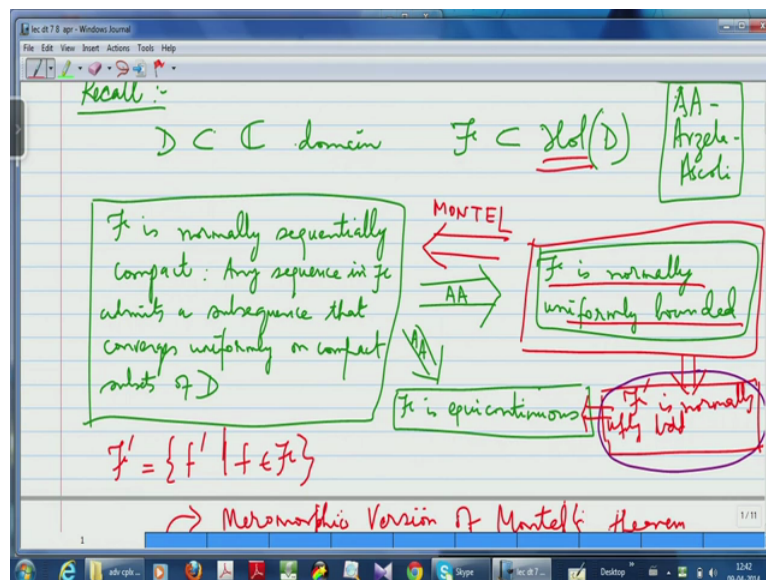 lec dt 7 8 apr - Windows Journal
File Edit View Insert Actions Tools Help
Recall :-
D ⊂ ℂ domain ℱ ⊂ Hol(D)
AA -
Arzela-
Ascoli
ℱ is normally sequentially
compact : Any sequence in ℱ
admits a subsequence that
converges uniformly on compact
subsets of D
MONTEL
AA
AA
ℱ is normally
uniformly bounded
ℱ is equicontinuous
ℱ' is normally
ufly bdd
ℱ' = {f' | f ∈ ℱ}
→ Meromorphic Version of Montel's theorem
1
1/11
adv cplx ...
Skype
lec dt 7...
Desktop
12:42
09-04-2014